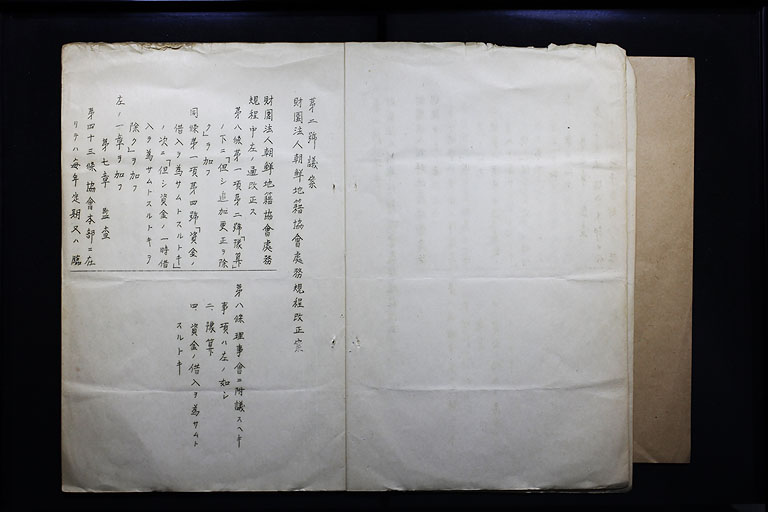 第二號議案
財團法人朝鮮地籍協會處務規程改正案
財團法人朝鮮地籍協會處務
規程中左ノ通改正ス
第八條第一項第二號「豫算」
ノ下ニ「但シ追加更正ヲ除
ク」ヲ加フ
同條第一項第四號「資金ノ
借入ヲ為サムトスルトキ」
ノ次ニ「但シ資金ノ一時借
入ヲ為サムトスルトキヲ
除ク」ヲ加フ
左ノ一章ヲ加フ
第七章 監査
第四十三條 協會本部ニ在
リテハ每年定期又ハ臨
第八條 理事會ニ附議スヘキ
事項ハ左ノ如シ
二、豫算
四、資金ノ借入ヲ為サムト
スルトキ